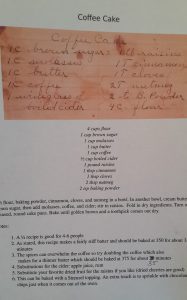 Coffee Cake
Coffee Cake
1C brown sugar 1lb raisins
1C molasses 1T cinnamon
1C butter 1T cloves
1C coffee 2T nutmeg
boiled cider 4C flour
4 cups flour
1 cup brown sugar
1 cup molasses
1 cup butter
1 cup coffee
½ cup boiled cider
1 pound raisins
1 tbsp cinnamon
1 tbsp cloves
2 tbsp nutmeg
2 tsp baking powder
flour, baking powder, cinnamon, cloves, and nutmeg in a bowl. In another bowl, cream butter
sugar, then add molasses, coffee, and cider; stir in raisins. Fold in dry ingredients. Turn
round cake pans. Bake until golden brown and a toothpick comes out dry.
Notes:
1. A ½ recipe is good for 4-6 people
2. As stated, this recipe makes a fairly stiff batter and should be baked at 350 for about
minutes
3. The spices can overwhelm the coffee so try doubling the coffee which also
makes for a thinner batter which should be baked at 375 for about
4. Substitutions for the cider: apple juice, rum
5. Substitute your favorite dried fruit for the raisins
6. This can be baked with a Streusel topping. An extra touch is to sprinkle with chocolate
chips just when it comes out of the oven.